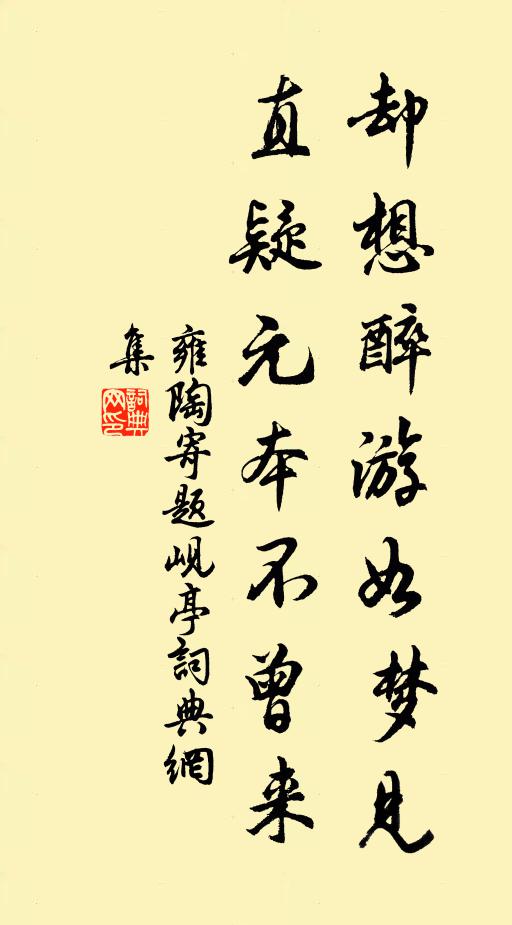 却想醉游如梦见
直疑元本不曾来
雍陶寄题岘亭詞典網
集
詞典网印